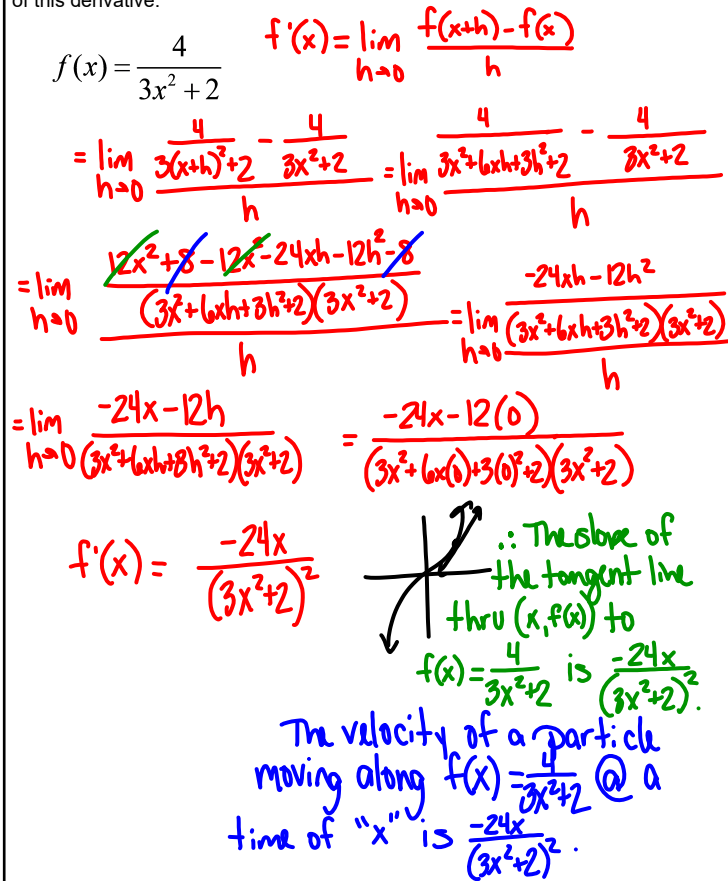 of this derivative.
f(x) = 4/(3x² + 2)
f'(x) = lim h→0 (f(x+h) - f(x))/h
= lim h→0 (4/(3(x+h)²+2) - 4/(3x²+2))/h = lim h→0 (4/(3x²+6xh+3h²+2) - 4/(3x²+2))/h
= lim h→0 ((12x²+8-12x²-24xh-12h²-8)/((3x²+6xh+3h²+2)(3x²+2)))/h = lim h→0 ((-24xh-12h²)/((3x²+6xh+3h²+2)(3x²+2)))/h
= lim h→0 (-24x-12h)/((3x²+6xh+3h²+2)(3x²+2)) = (-24x-12(0))/((3x²+6x(0)+3(0)²+2)(3x²+2))
f'(x) = -24x/(3x²+2)²
∴ The slope of
the tangent line
thru (x, f(x)) to
f(x) = 4/(3x²+2) is -24x/(3x²+2)².
The velocity of a particle
moving along f(x) = 4/(3x²+2) @ a
time of "x" is -24x/(3x²+2)².